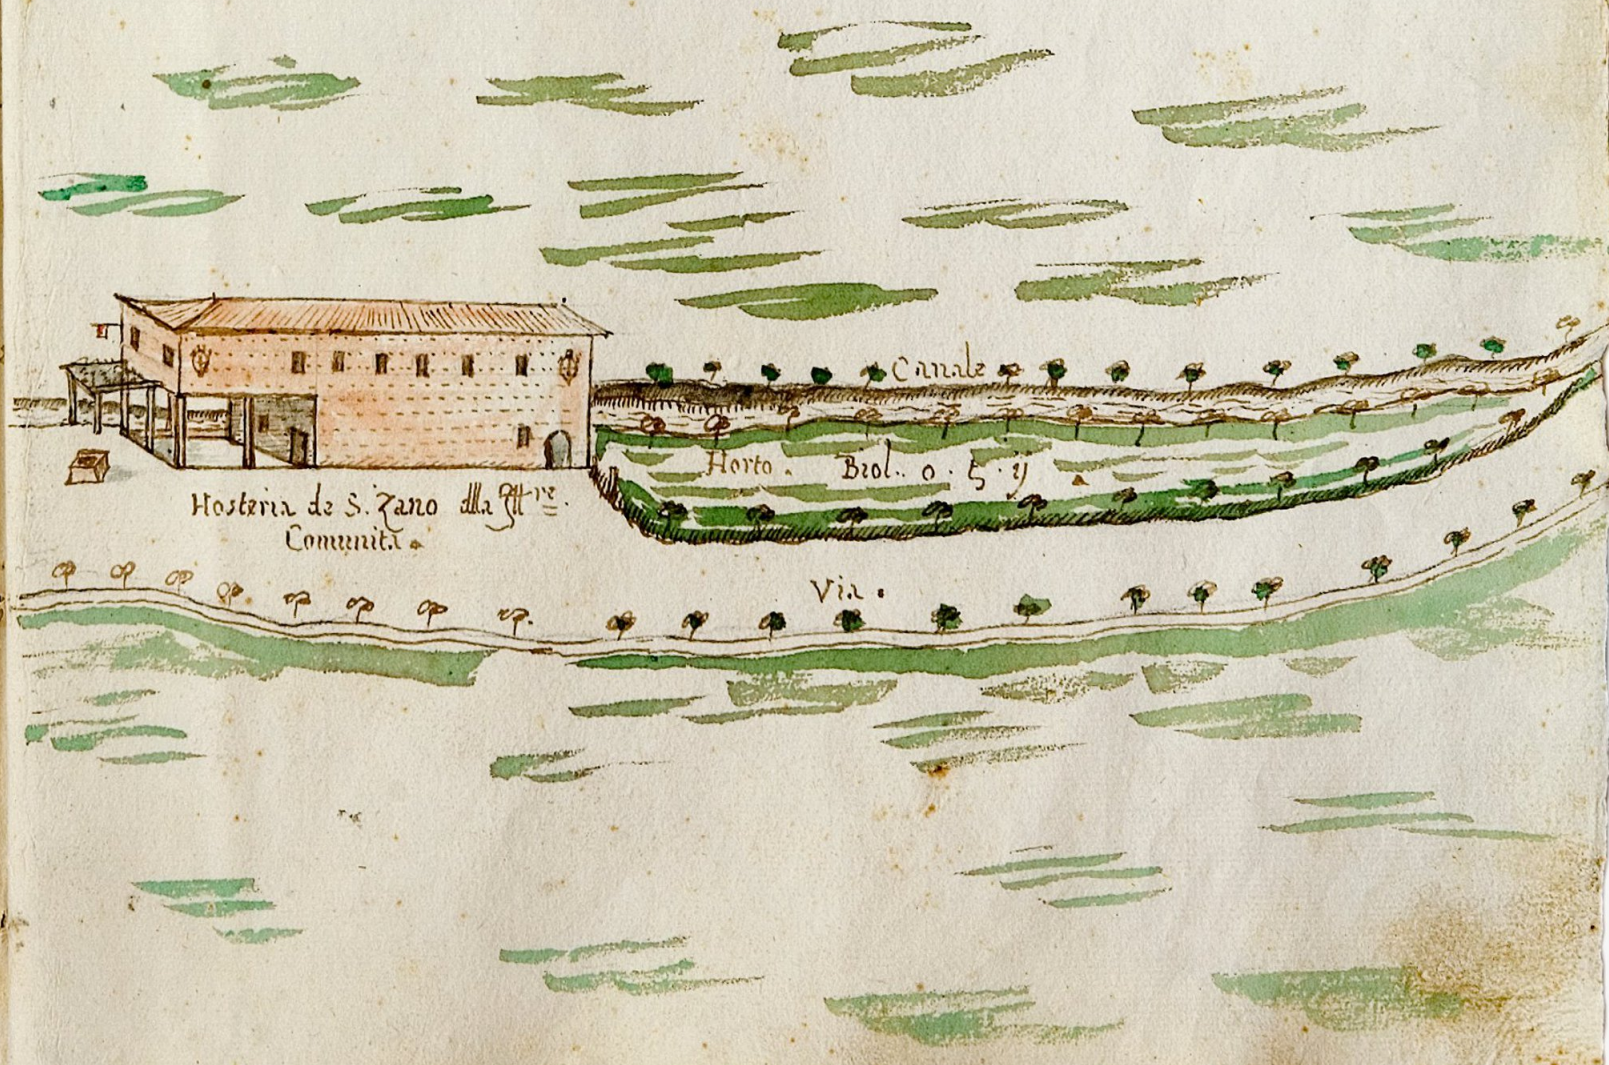 Canale
Horto. Biol.. o. 5. ij
Hosteria de S. Zano alla
Comunità.
Via.